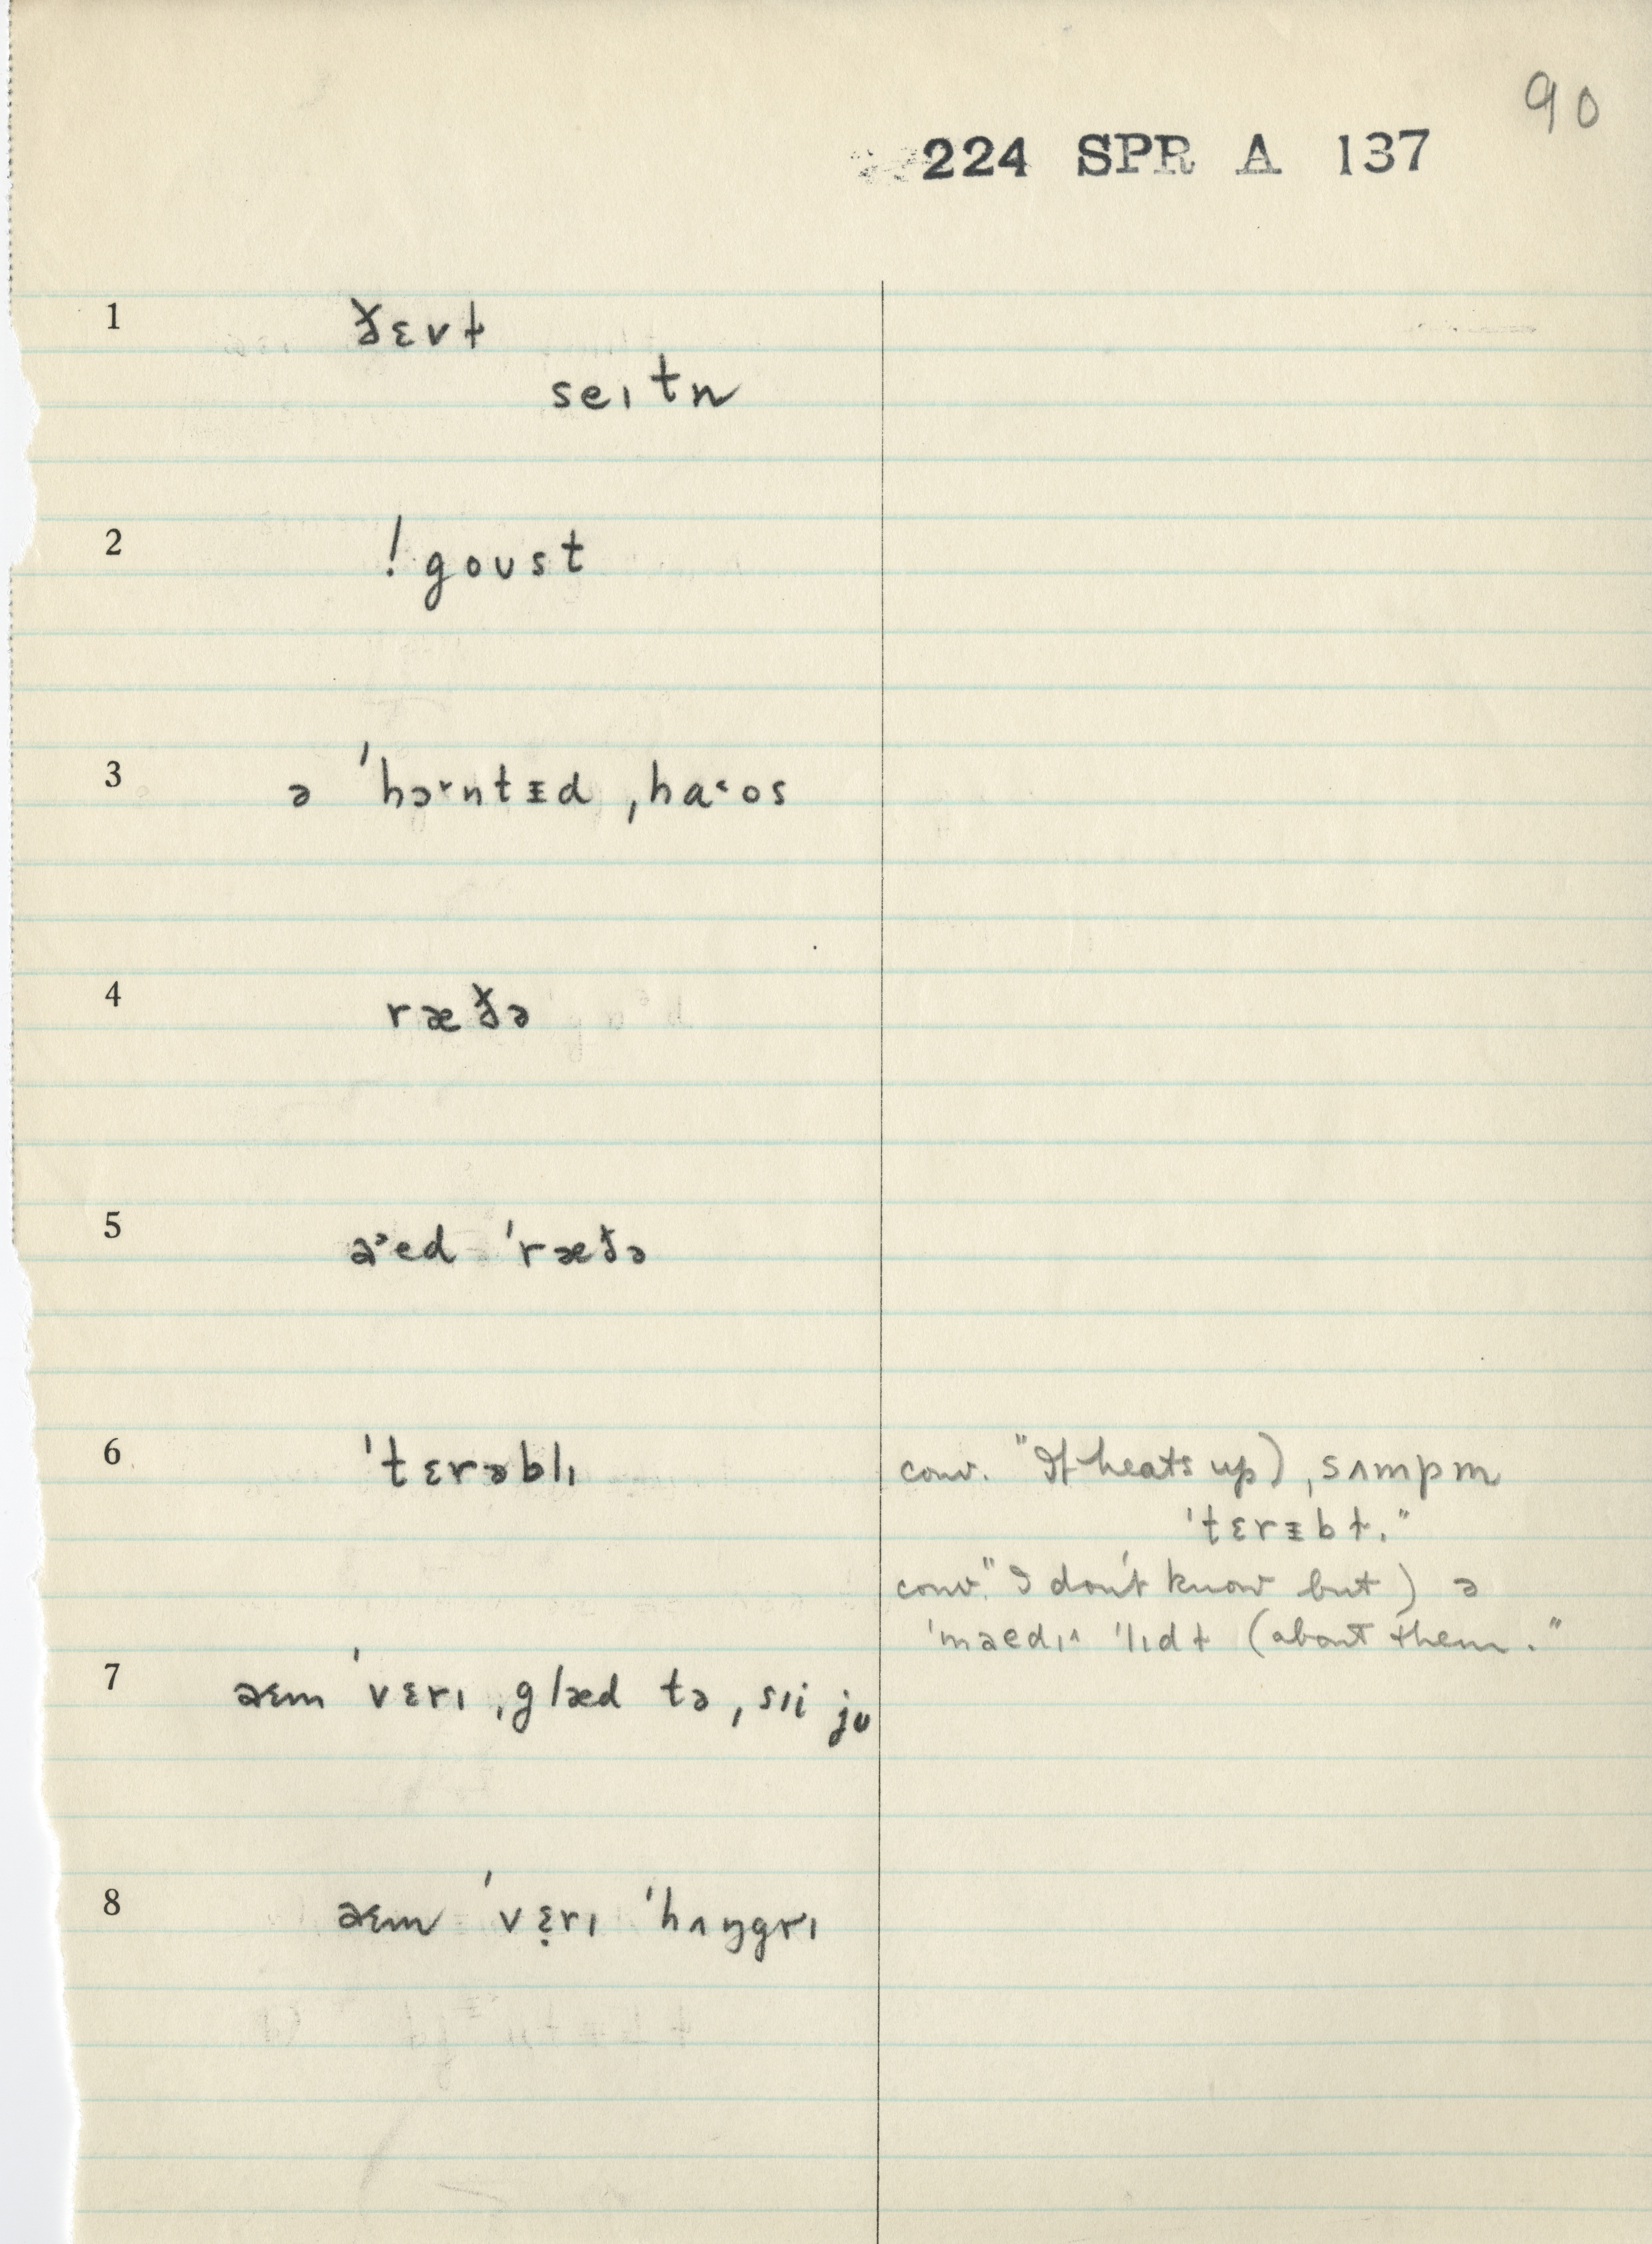 90
224 SPR A 137
1 ðɛvɫ
seɪtn
2 ! goust
3 ə ˈhɔ˞ntᵻd ˌha˂os
4 ræðə
5 a˃ed ˈræðə
6 ˈtɛrəblɪ
conv. "It heats up) ˌsʌmpm
ˈtɛrᵻbɫ."
conv. "I don't know but) ə
ˈmaedɪ^ ˈlɪdɫ (about them."
7 aɛm ˈvɛrɪ ˌglæd tə ˌsɪi ju
8 aɛm ˈvɛ̣rɪ ˈhʌŋgrɪ